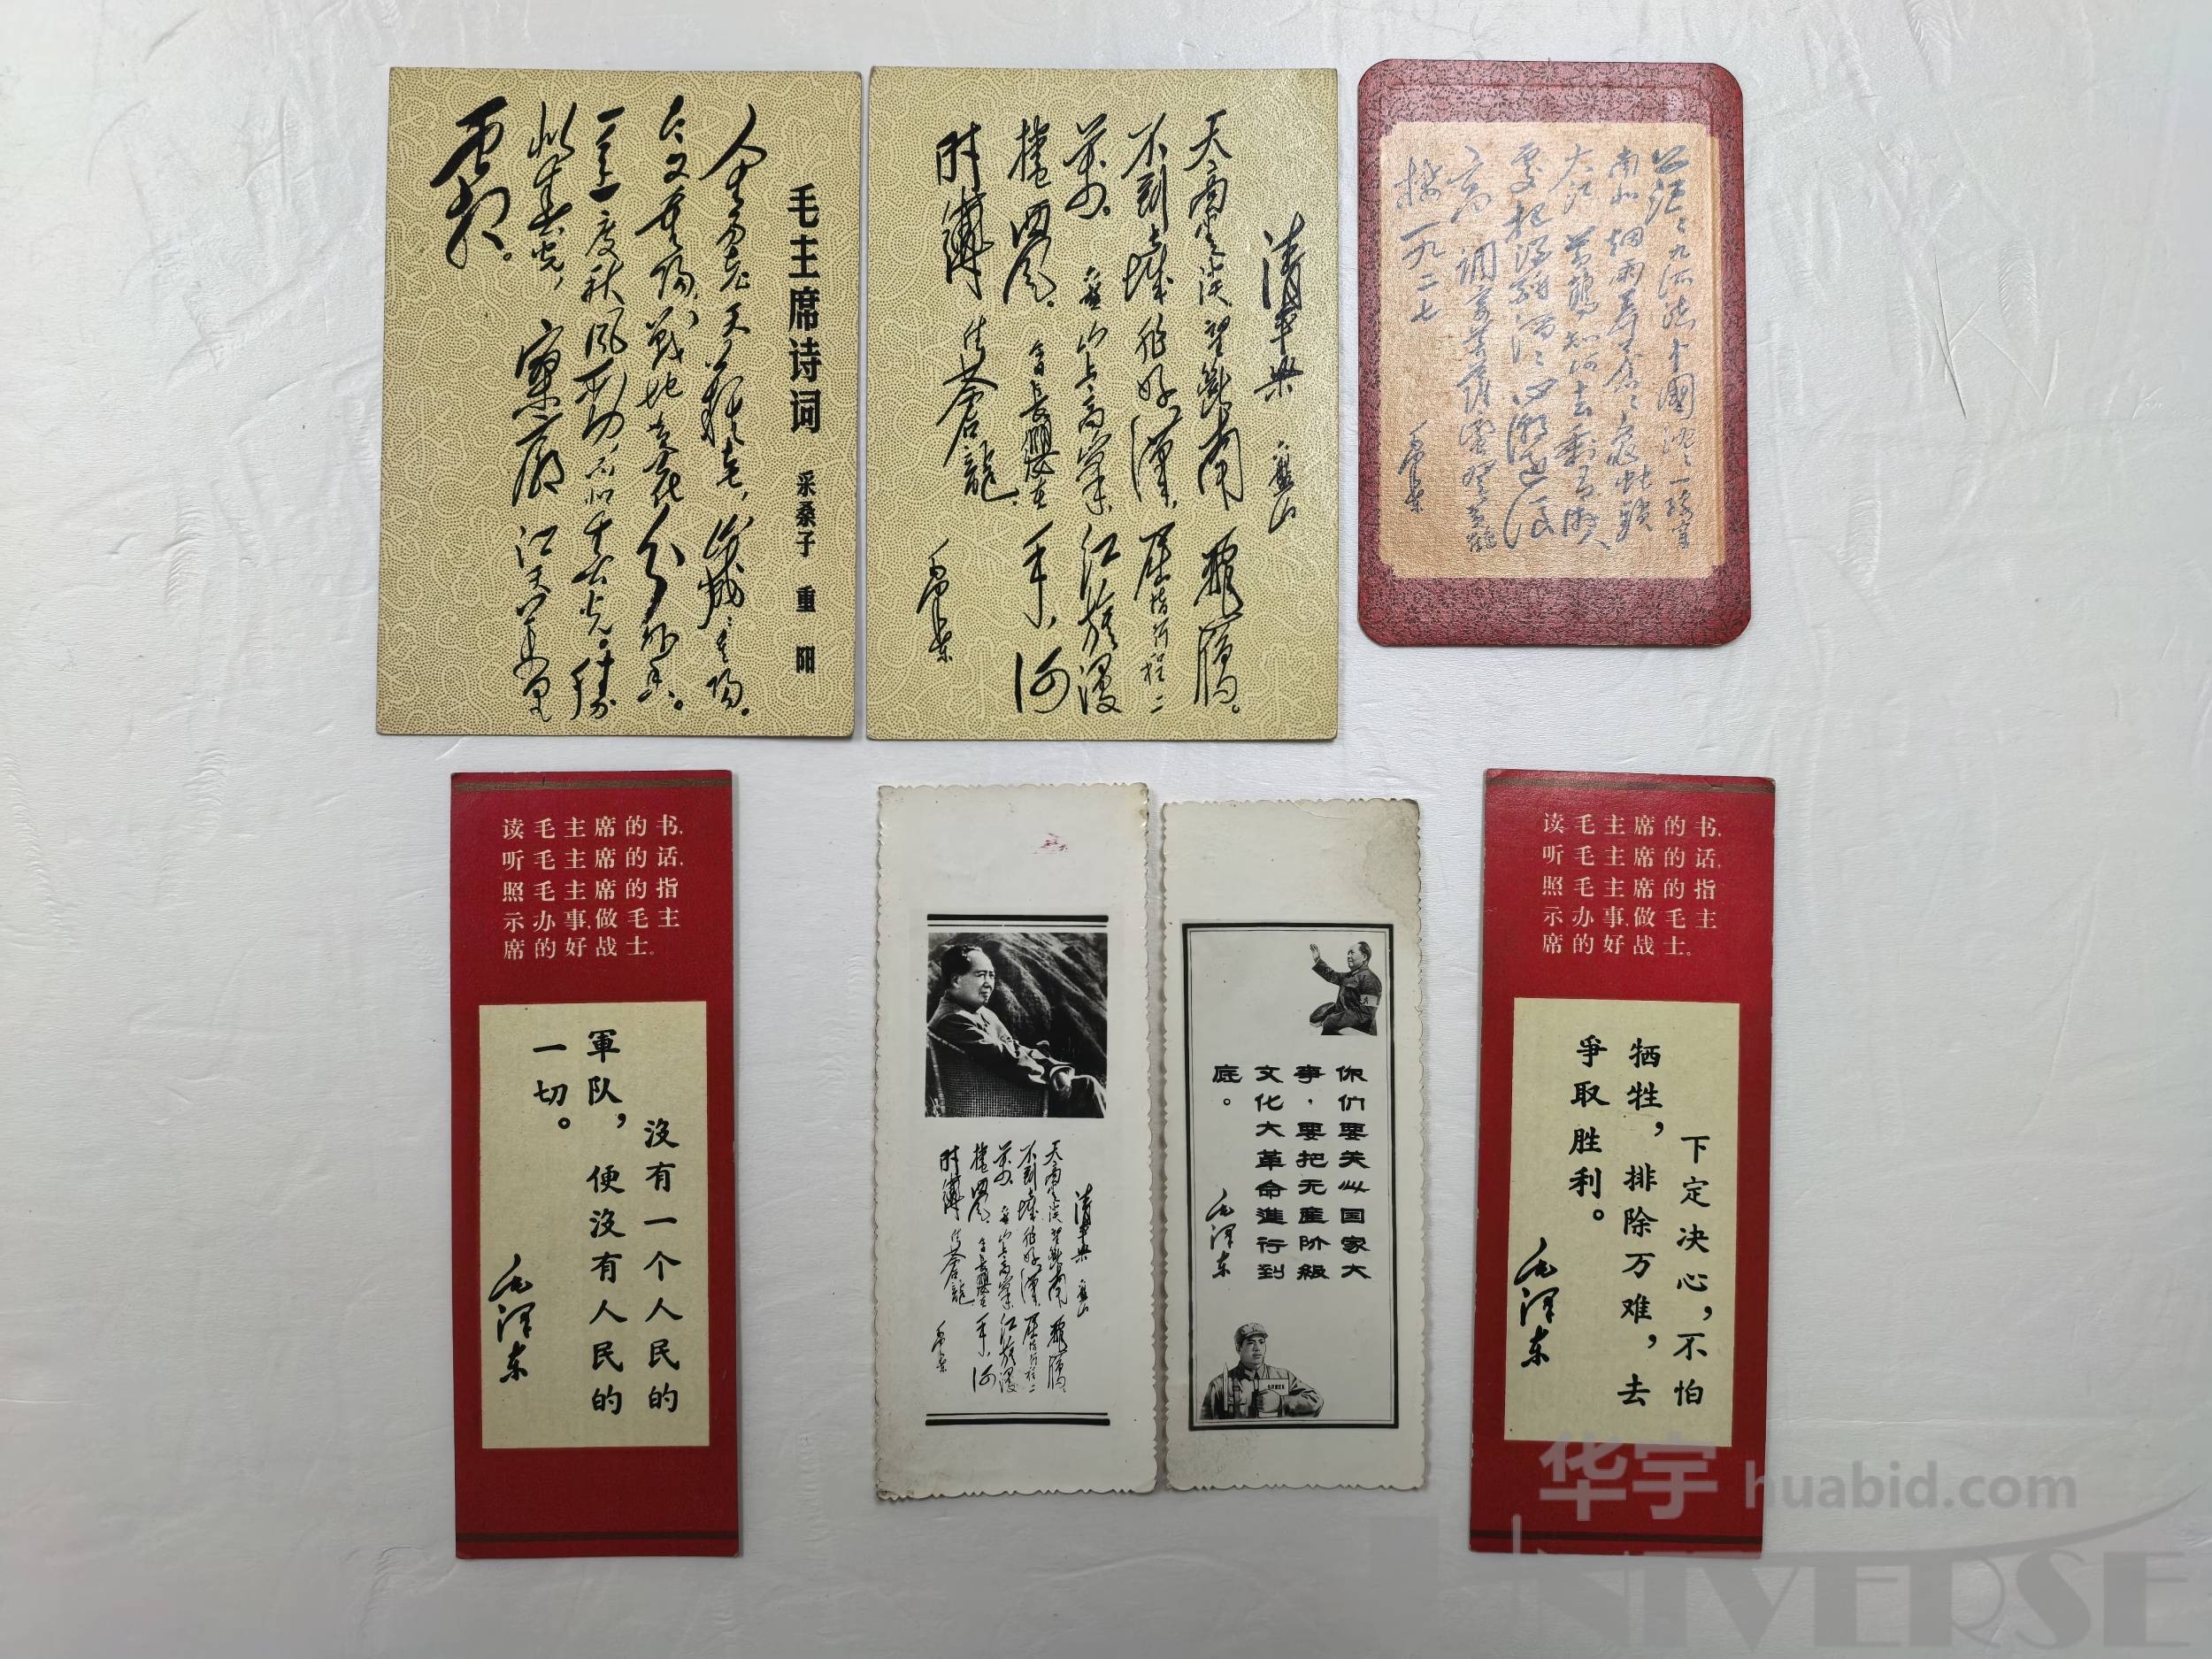 毛主席诗词 采桑子 重阳
人生易老天难老,岁岁重阳。
今又重阳,战地黄花分外香。
一年一度秋风劲,不似春光。胜
似春光,寥廓江天万里
霜。
清平樂 六盤山
天高雲淡望斷南飛雁。
不到長城非好漢,屈指行程二
萬。六盤山上高峯,紅旗漫
捲西风。今日長纓在手,何
時縛住蒼龍
毛泽东
茫茫九派流中國 沉沉一線穿
南北 烟雨莽蒼蒼 龜蛇鎖
大江 黄鶴知何去 剩有遊人
處 把酒酹滔滔 心潮逐浪
高 調寄菩薩蠻 登黄鶴
樓 一九二七
毛泽东
读毛主席的书,
听毛主席的话,
照毛主席的指
示办事,做毛主
席的好战士。
沒有一个人民的
軍队,便沒有人民的
一切。
毛泽东
清平樂 六盤山
天高雲淡望斷南飛雁。
不到長城非好漢,屈指行程二
萬。六盤山上高峯,紅旗漫
捲西风。今日長纓在手,何
時縛住蒼龍
毛泽东
你们要关心国家大
事,要把无產阶級
文化大革命進行到
底。
毛泽东
读毛主席的书,
听毛主席的话,
照毛主席的指
示办事,做毛主
席的好战士。
下定决心,不怕
牺牲,排除万难,去
爭取胜利。
毛泽东
华宇 huabid.com
NIVERSE